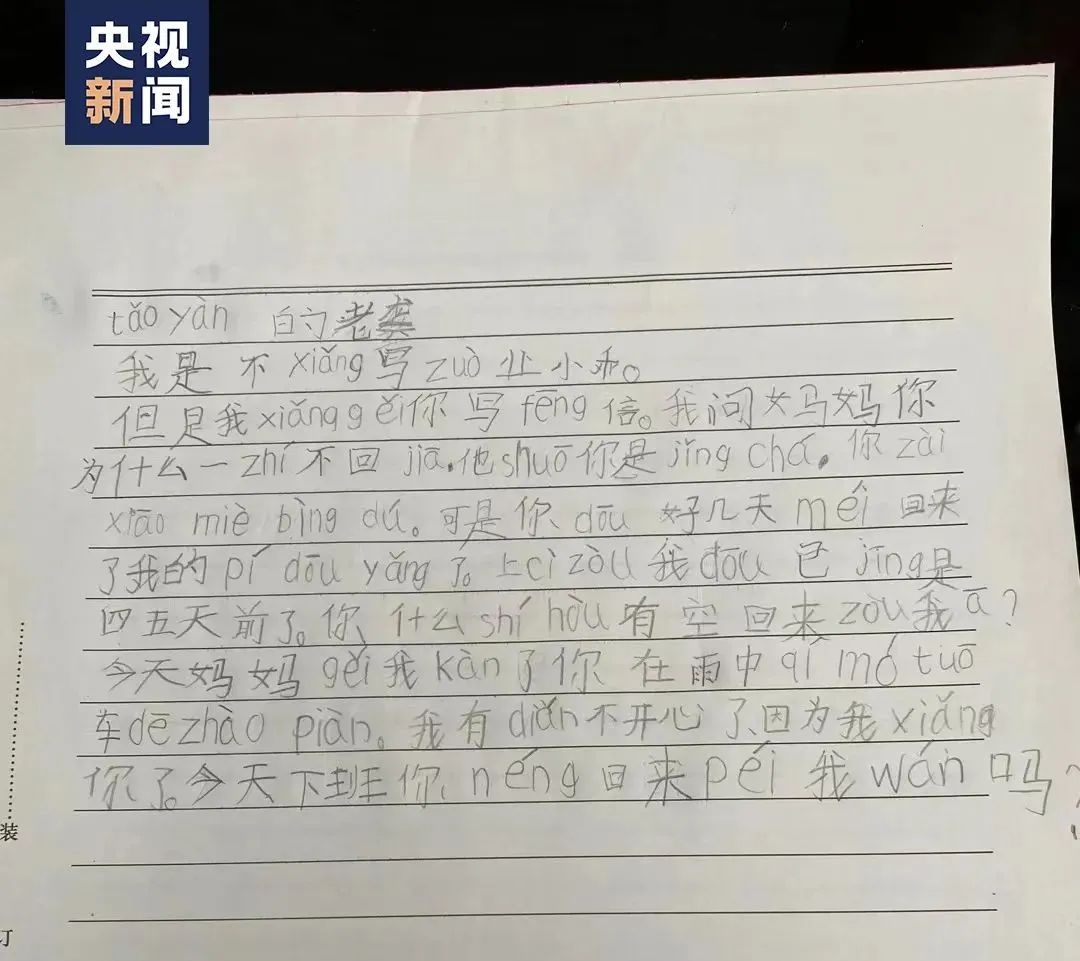 央视
新闻
tǎo yàn 的老龚
我是不xiǎng写zuò业小乖。
但是我xiǎng gěi你写fēng信。我问妈妈你
为什么一zhí不回jiā。他shuō你是jǐng chá。你zài
xiāo miè bìng dú。可是你dōu好几天méi回来
了我的pí dōu yǎng了。上cì zòu我dōu已jīng是
四五天前了。你什么shí hòu有空回来zòu我ā?
今天妈妈gěi我kàn了你在雨中qí mó tuō
车dē zhào piàn。我有diǎn不开心了因为我xiǎng
你了。今天下班你néng回来péi我wán吗?
装
订